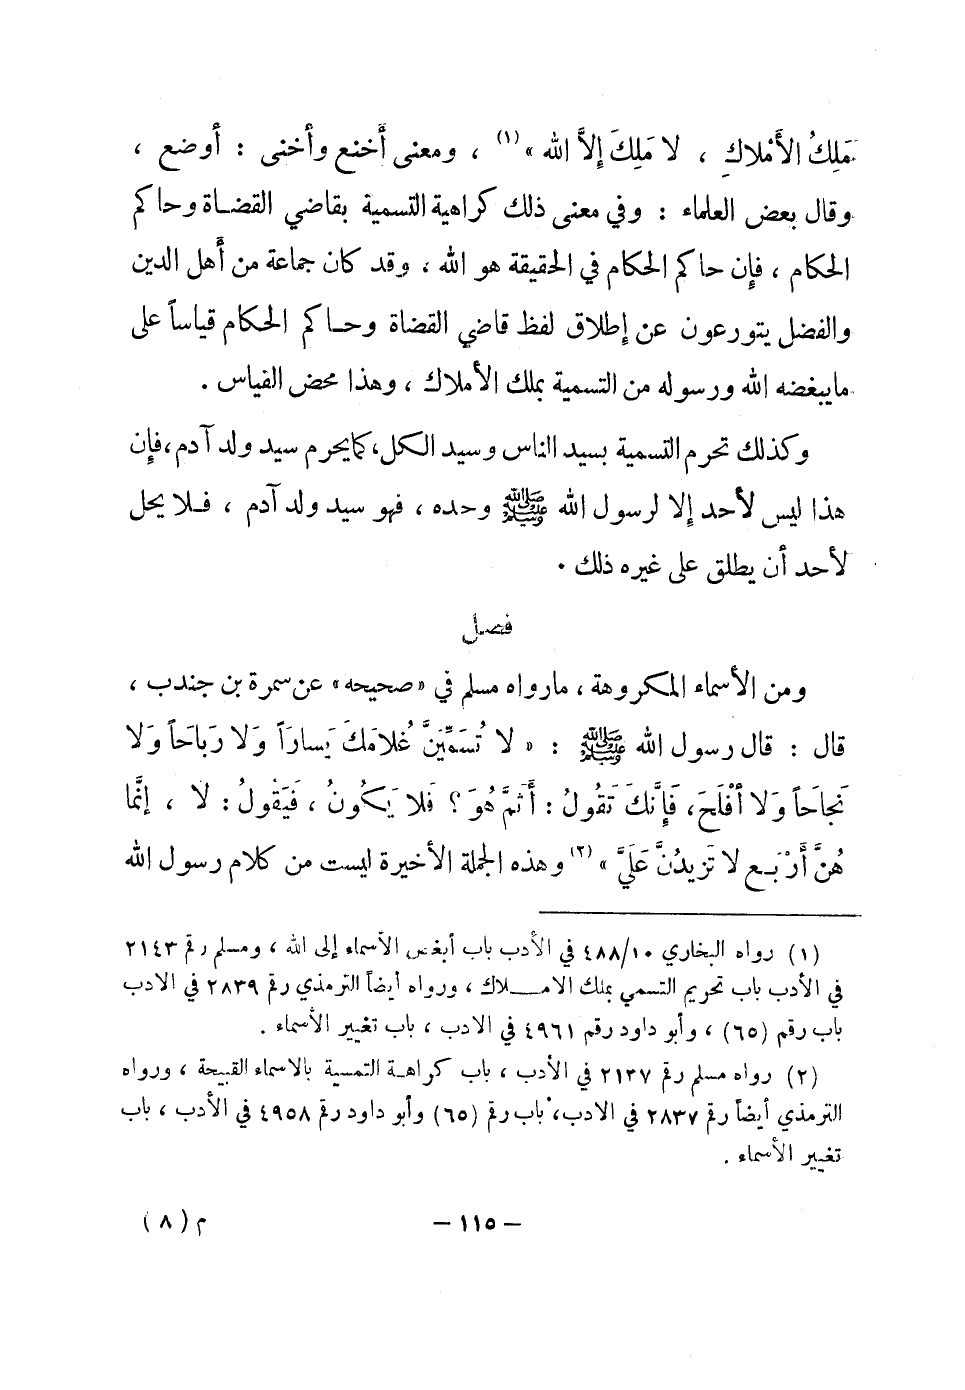 مَلِكُ الأَمْلاكِ ، لا مَلِكَ إلاَّ الله » (١) ، ومعنى أخنع وأخنى : أوضع ،
وقال بعض العلماء : وفي معنى ذلك كراهية التسمية بقاضي القضاة وحاكم
الحكام ، فإن حاكم الحكام في الحقيقة هو الله ، وقد كان جماعة من أهل الدين
والفضل يتورعون عن إطلاق لفظ قاضي القضاة وحاكم الحكام قياساً على
مايبغضه الله ورسوله من التسمية بملك الأملاك ، وهذا محض القياس .
وكذلك تحرم التسمية بسيد الناس وسيد الكل، كمايحرم سيد ولد آدم، فإن
هذا ليس لأحد إلا لرسول الله ﷺ وحده ، فهو سيد ولد آدم ، فلا يحل
لأحد أن يطلق على غيره ذلك .
فصل
ومن الأسماء المكروهة ، مارواه مسلم في «صحيحه» عن سمرة بن جندب ،
قال : قال رسول الله ﷺ : « لا تُسَمِّيَنَّ غُلامَكَ يَساراً وَلا رَبَاحَاً وَلا
نَجاحَاً وَلا أفْلَحَ، فَإنَّكَ تَقُولُ : أَثَمَّ هُوَ ؟ فَلا يَكُونُ ، فَيَقُولُ : لا ، إنَّما
هُنَّ أَرْبَع لا تَزيدُنَّ عَلَيَّ » (٢) وهذه الجملة الأخيرة ليست من كلام رسول الله
(١) رواه البخاري ٤٨٨/١٠ في الأدب باب أبغض الأسماء إلى الله ، ومسلم رقم ٢١٤٣
في الأدب باب تحريم التسمي بملك الاملاك ، ورواه أيضاً الترمذي رقم ٢٨٣٩ في الادب
باب رقم (٦٥) ، وأبو داود رقم ٤٩٦١ في الادب ، باب تغيير الأسماء .
(٢) رواه مسلم رقم ٢١٣٧ في الأدب ، باب كراهة التمسية بالاسماء القبيحة ، ورواه
الترمذي أيضاً رقم ٢٨٣٧ في الادب، باب رقم (٦٥) وأبو داود رقم ٤٩٥٨ في الأدب ، باب
تغيير الأسماء .
– ١١٥ – م ( ٨ )